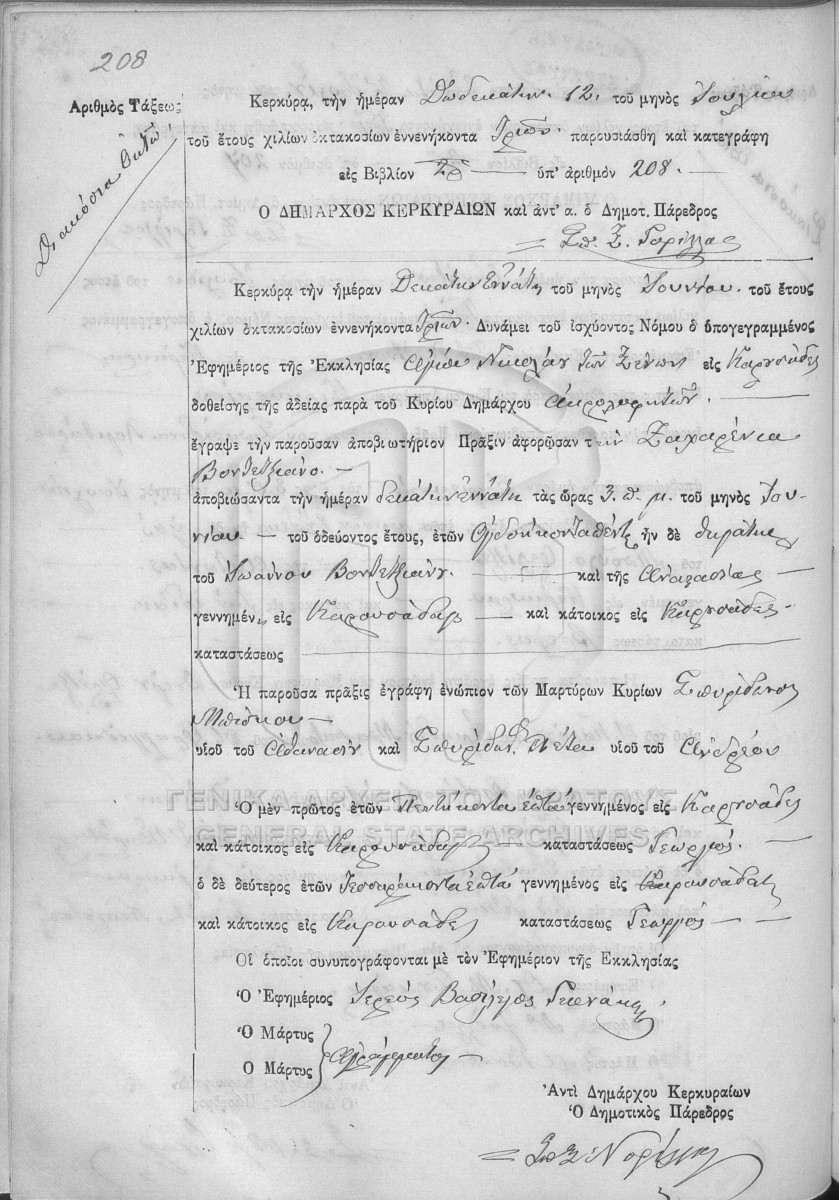 208
Ἀριθμὸς Τάξεως
Διακόσια ὀκτώ
Κερκύρᾳ, τὴν ἡμέραν Δωδεκάτην 12. τοῦ μηνὸς Ἰουλίου
τοῦ ἔτους χιλίων ὀκτακοσίων ἐννενήκοντα Τριῶν. παρουσιάσθη καὶ κατεγράφη
εἰς Βιβλίον 2ον — ὑπ' ἀριθμὸν 208. —
Ο ΔΗΜΑΡΧΟΣ ΚΕΡΚΥΡΑΙΩΝ καὶ ἀντ' α. ὁ Δημοτ. Πάρεδρος
Σπ. Σ.
Κερκύρᾳ τὴν ἡμέραν Δεκάτην Ἐννάτην τοῦ μηνὸς Ἰουνίου. τοῦ ἔτους
χιλίων ὀκτακοσίων ἐννενήκοντα Τριῶν. Δυνάμει τοῦ ἰσχύοντος Νόμου ὁ ὑπογεγραμμένος
Ἐφημέριος τῆς Ἐκκλησίας Ἁγίου Νικολάου τῶν Ξένων εἰς Καρουσάδες
δοθείσης τῆς ἀδείας παρὰ τοῦ Κυρίου Δημάρχου
ἔγραψε τὴν παροῦσαν ἀποβιωτήριον Πρᾶξιν ἀφορῶσαν τὴν Ζαχαρένια
Βοντετζιάνο. —
ἀποβιώσαντα τὴν ἡμέραν δεκάτην ἐννάτην τὰς ὥρας 3. π. μ. τοῦ μηνὸς Ἰου-
νίου — τοῦ ὁδεύοντος ἔτους, ἐτῶν Ὀγδοήκοντα πέντε ἦν δὲ θυγάτηρ
τοῦ Ἰωάννου Βοντετζιάνου. — καὶ τῆς Ἀναστασίας —
γεννημέν. εἰς Καρουσάδες — καὶ κάτοικος εἰς Καρουσάδες —
καταστάσεως
Ἡ παροῦσα πρᾶξις ἐγράφη ἐνώπιον τῶν Μαρτύρων Κυρίων Σπυρίδωνος
υἱοῦ τοῦ Ἀθανασίου καὶ Σπυρίδων. Πέτα υἱοῦ τοῦ Ἀνδρέου
ΓΕΝΙΚΑ ΑΡΧΕΙΑ ΤΟΥ ΚΡΑΤΟΥΣ
GENERAL STATE ARCHIVES
Ὁ μὲν πρῶτος ἐτῶν Πεντήκοντα ἑπτά γεννημένος εἰς Καρουσάδες
καὶ κάτοικος εἰς Καρουσάδες — καταστάσεως Γεωργός. —
ὁ δὲ δεύτερος ἐτῶν Τεσσαράκοντα ἑπτά γεννημένος εἰς Καρουσάδες
καὶ κάτοικος εἰς Καρουσάδες καταστάσεως Γεωργός — —
Οἱ ὁποῖοι συνυπογράφονται μὲ τὸν Ἐφημέριον τῆς Ἐκκλησίας
Ὁ Ἐφημέριος Ἱερεὺς Βασίλειος
Ὁ Μάρτυς
Ὁ Μάρτυς } Ἀγράμματοι —
Ἀντὶ Δημάρχου Κερκυραίων
Ὁ Δημοτικὸς Πάρεδρος